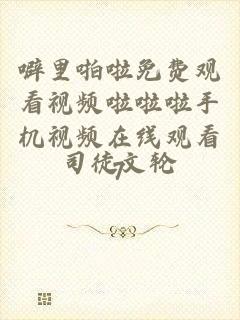 噼里啪啦免费观
看视频啦啦啦手
机视频在线观看
7
司徒文轮